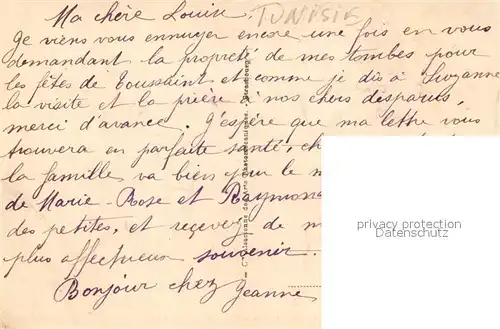 Ma chère Louise. TUNISIE
Je viens vous ennuyer encore une fois en vous
demandant la propreté de mes tombes pour
les fêtes de Toussaint et comme je dis à Suzanne
la visite et la prière à nos chers disparus,
merci d'avance. J'espère que ma lettre vous
trouvera en parfaite santé, ch
la famille va bien que le
de Marie-Rose et Raymond
des petites, et recevez de m
plus affectueux souvenir.
Bonjour chez Jeanne
privacy protection
Datenschutz